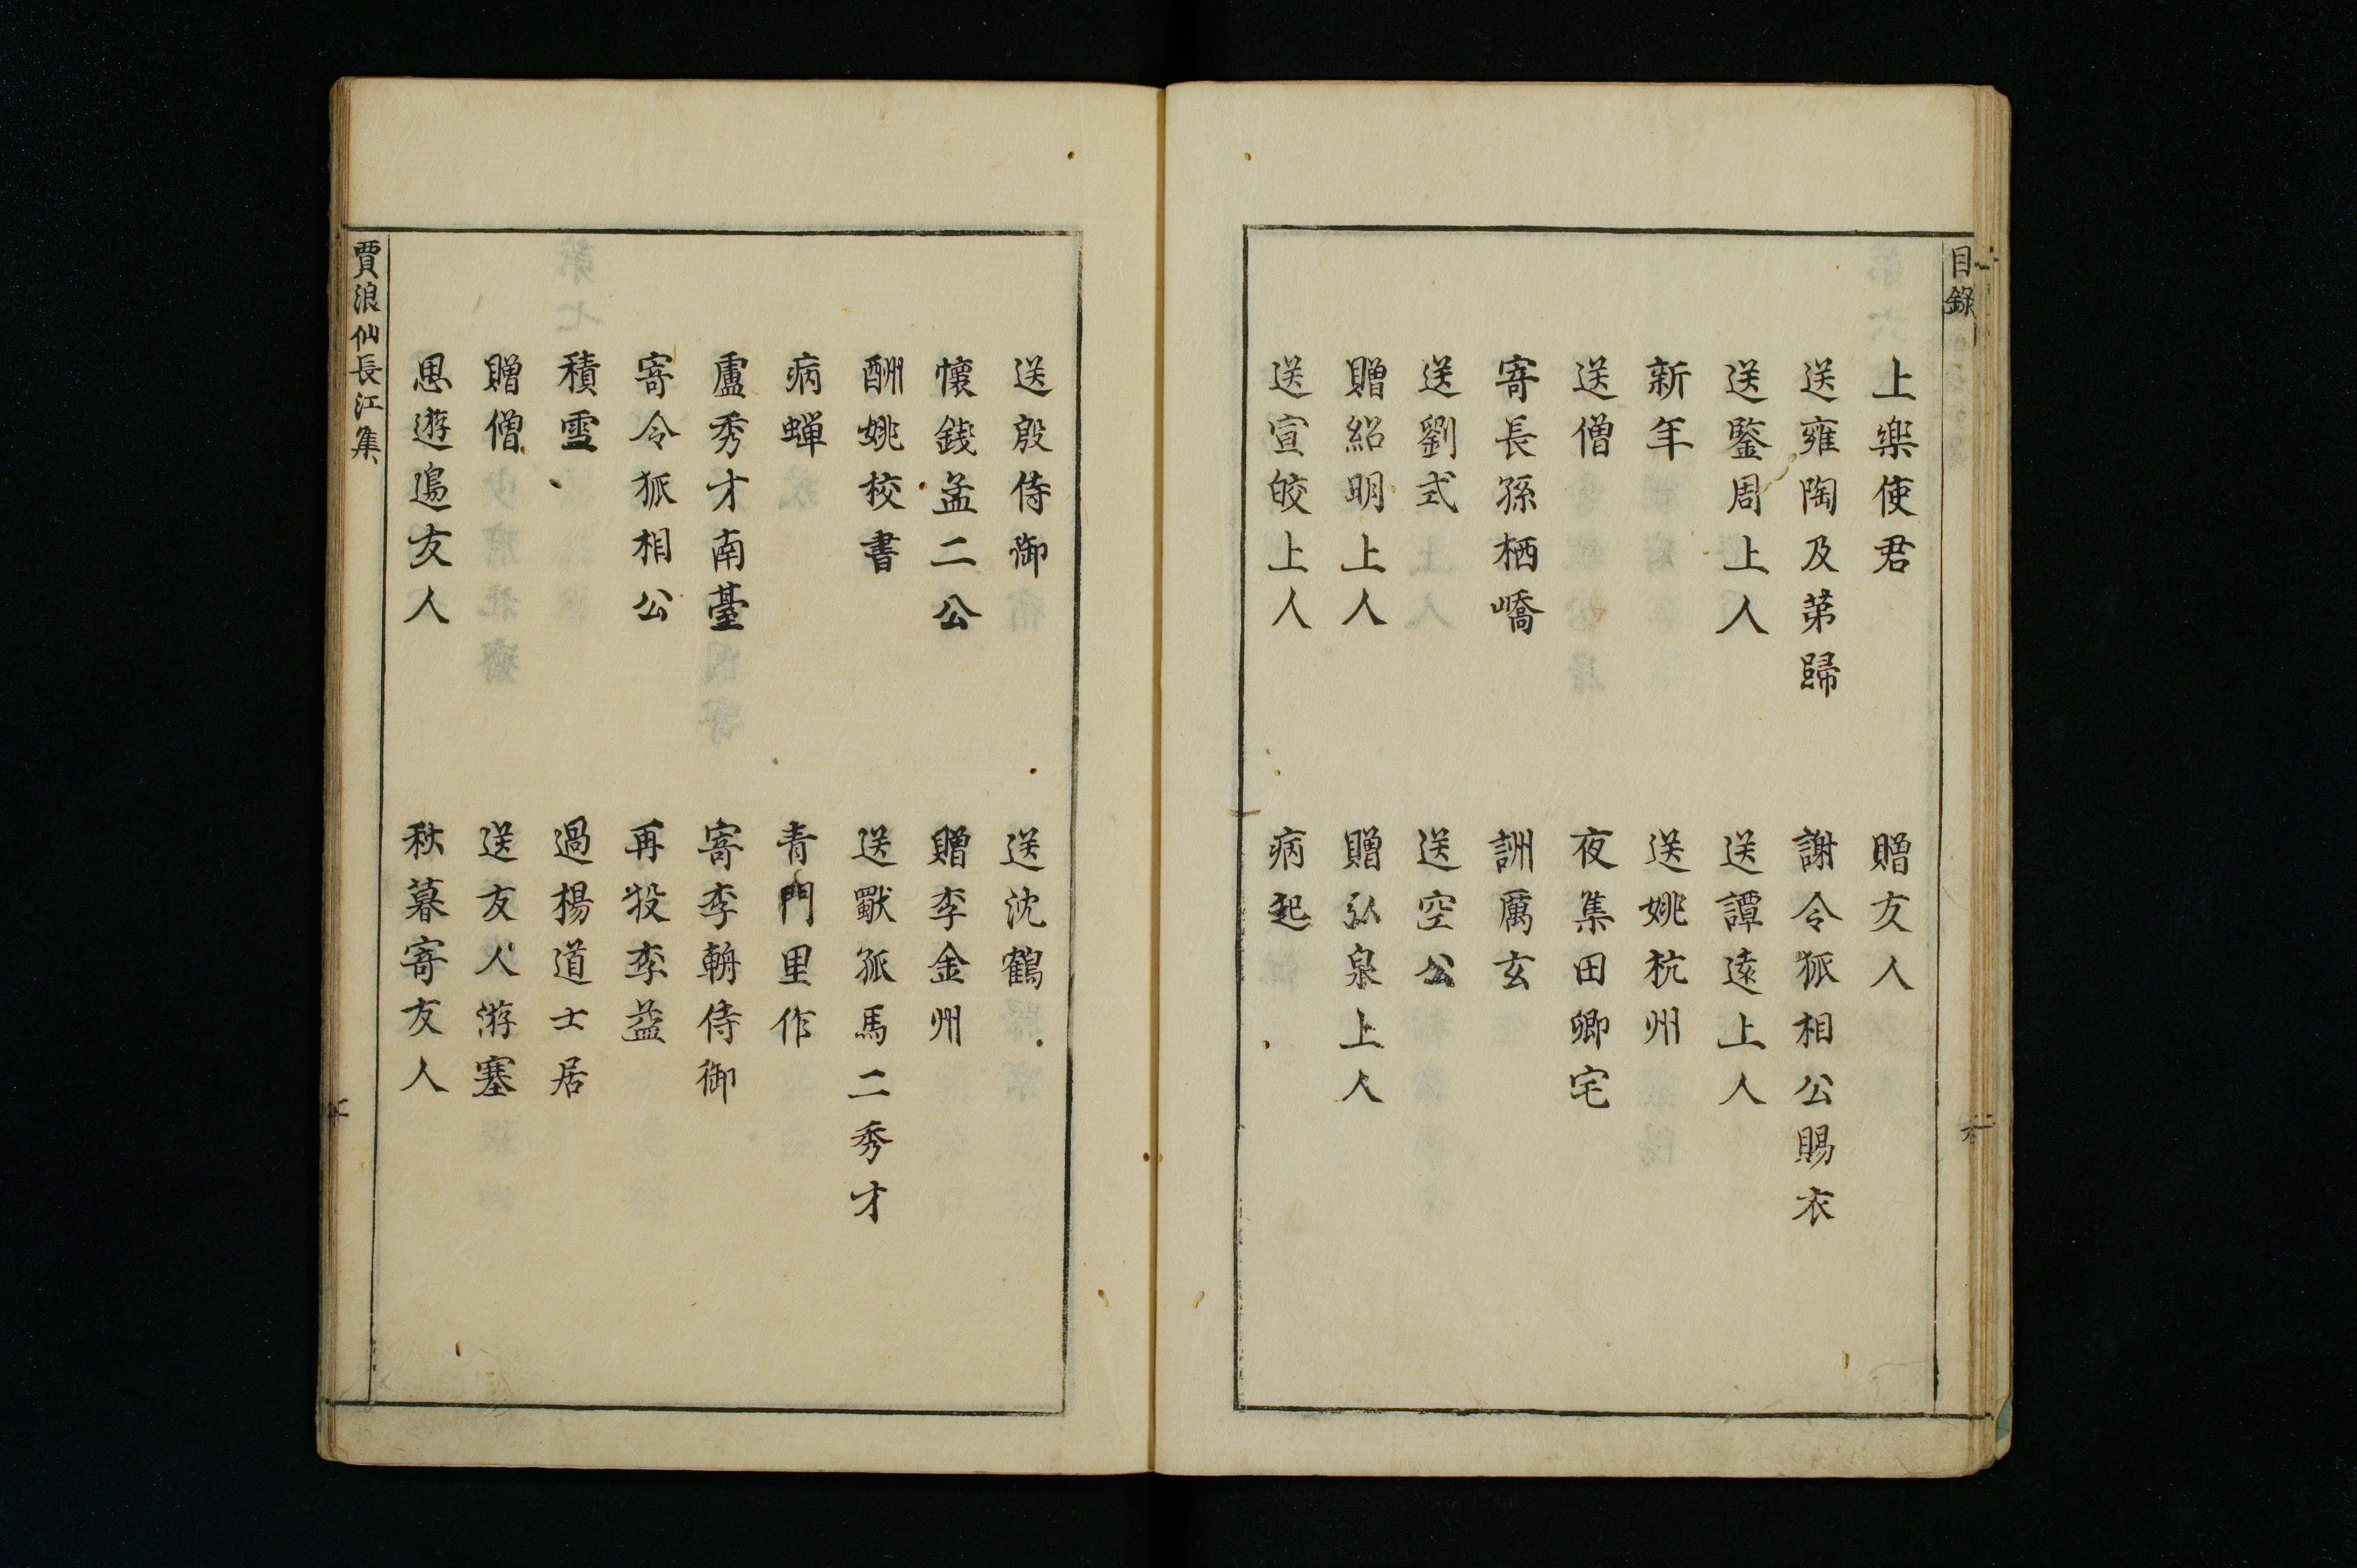 目錄
上樂使君　贈友人
送雍陶及第歸　謝令狐相公賜衣
送鑒周上人　送譚遠上人
新年　送姚杭州
送僧　夜集田卿宅
寄長孫栖嶠　詶厲玄
送劉式　送空公
贈紹明上人　贈弘泉上人
送宣皎上人　病起
送殷侍御　送沈鶴
懷錢孟二公　贈李金州
酬姚校書　送獸孤馬二秀才
病蟬　青門里作
盧秀才南臺　寄李輈侍御
寄令狐相公　再投李益
積雪　過楊道士居
贈僧　送友人游塞
思遊邊友人　秋暮寄友人
賈浪仙長江集